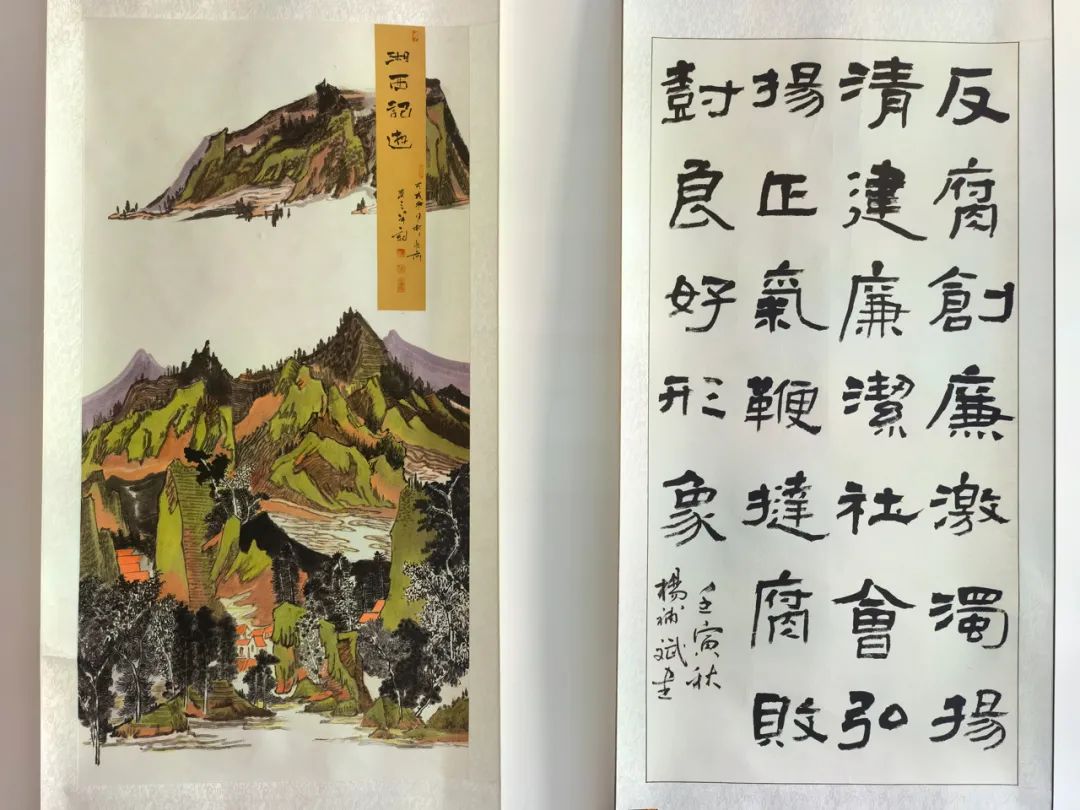 湘西記遊
反腐創廉激濁揚
清建廉潔社會弘
揚正氣鞭撻腐敗
尌良好形象
壬寅秋
楊斌書